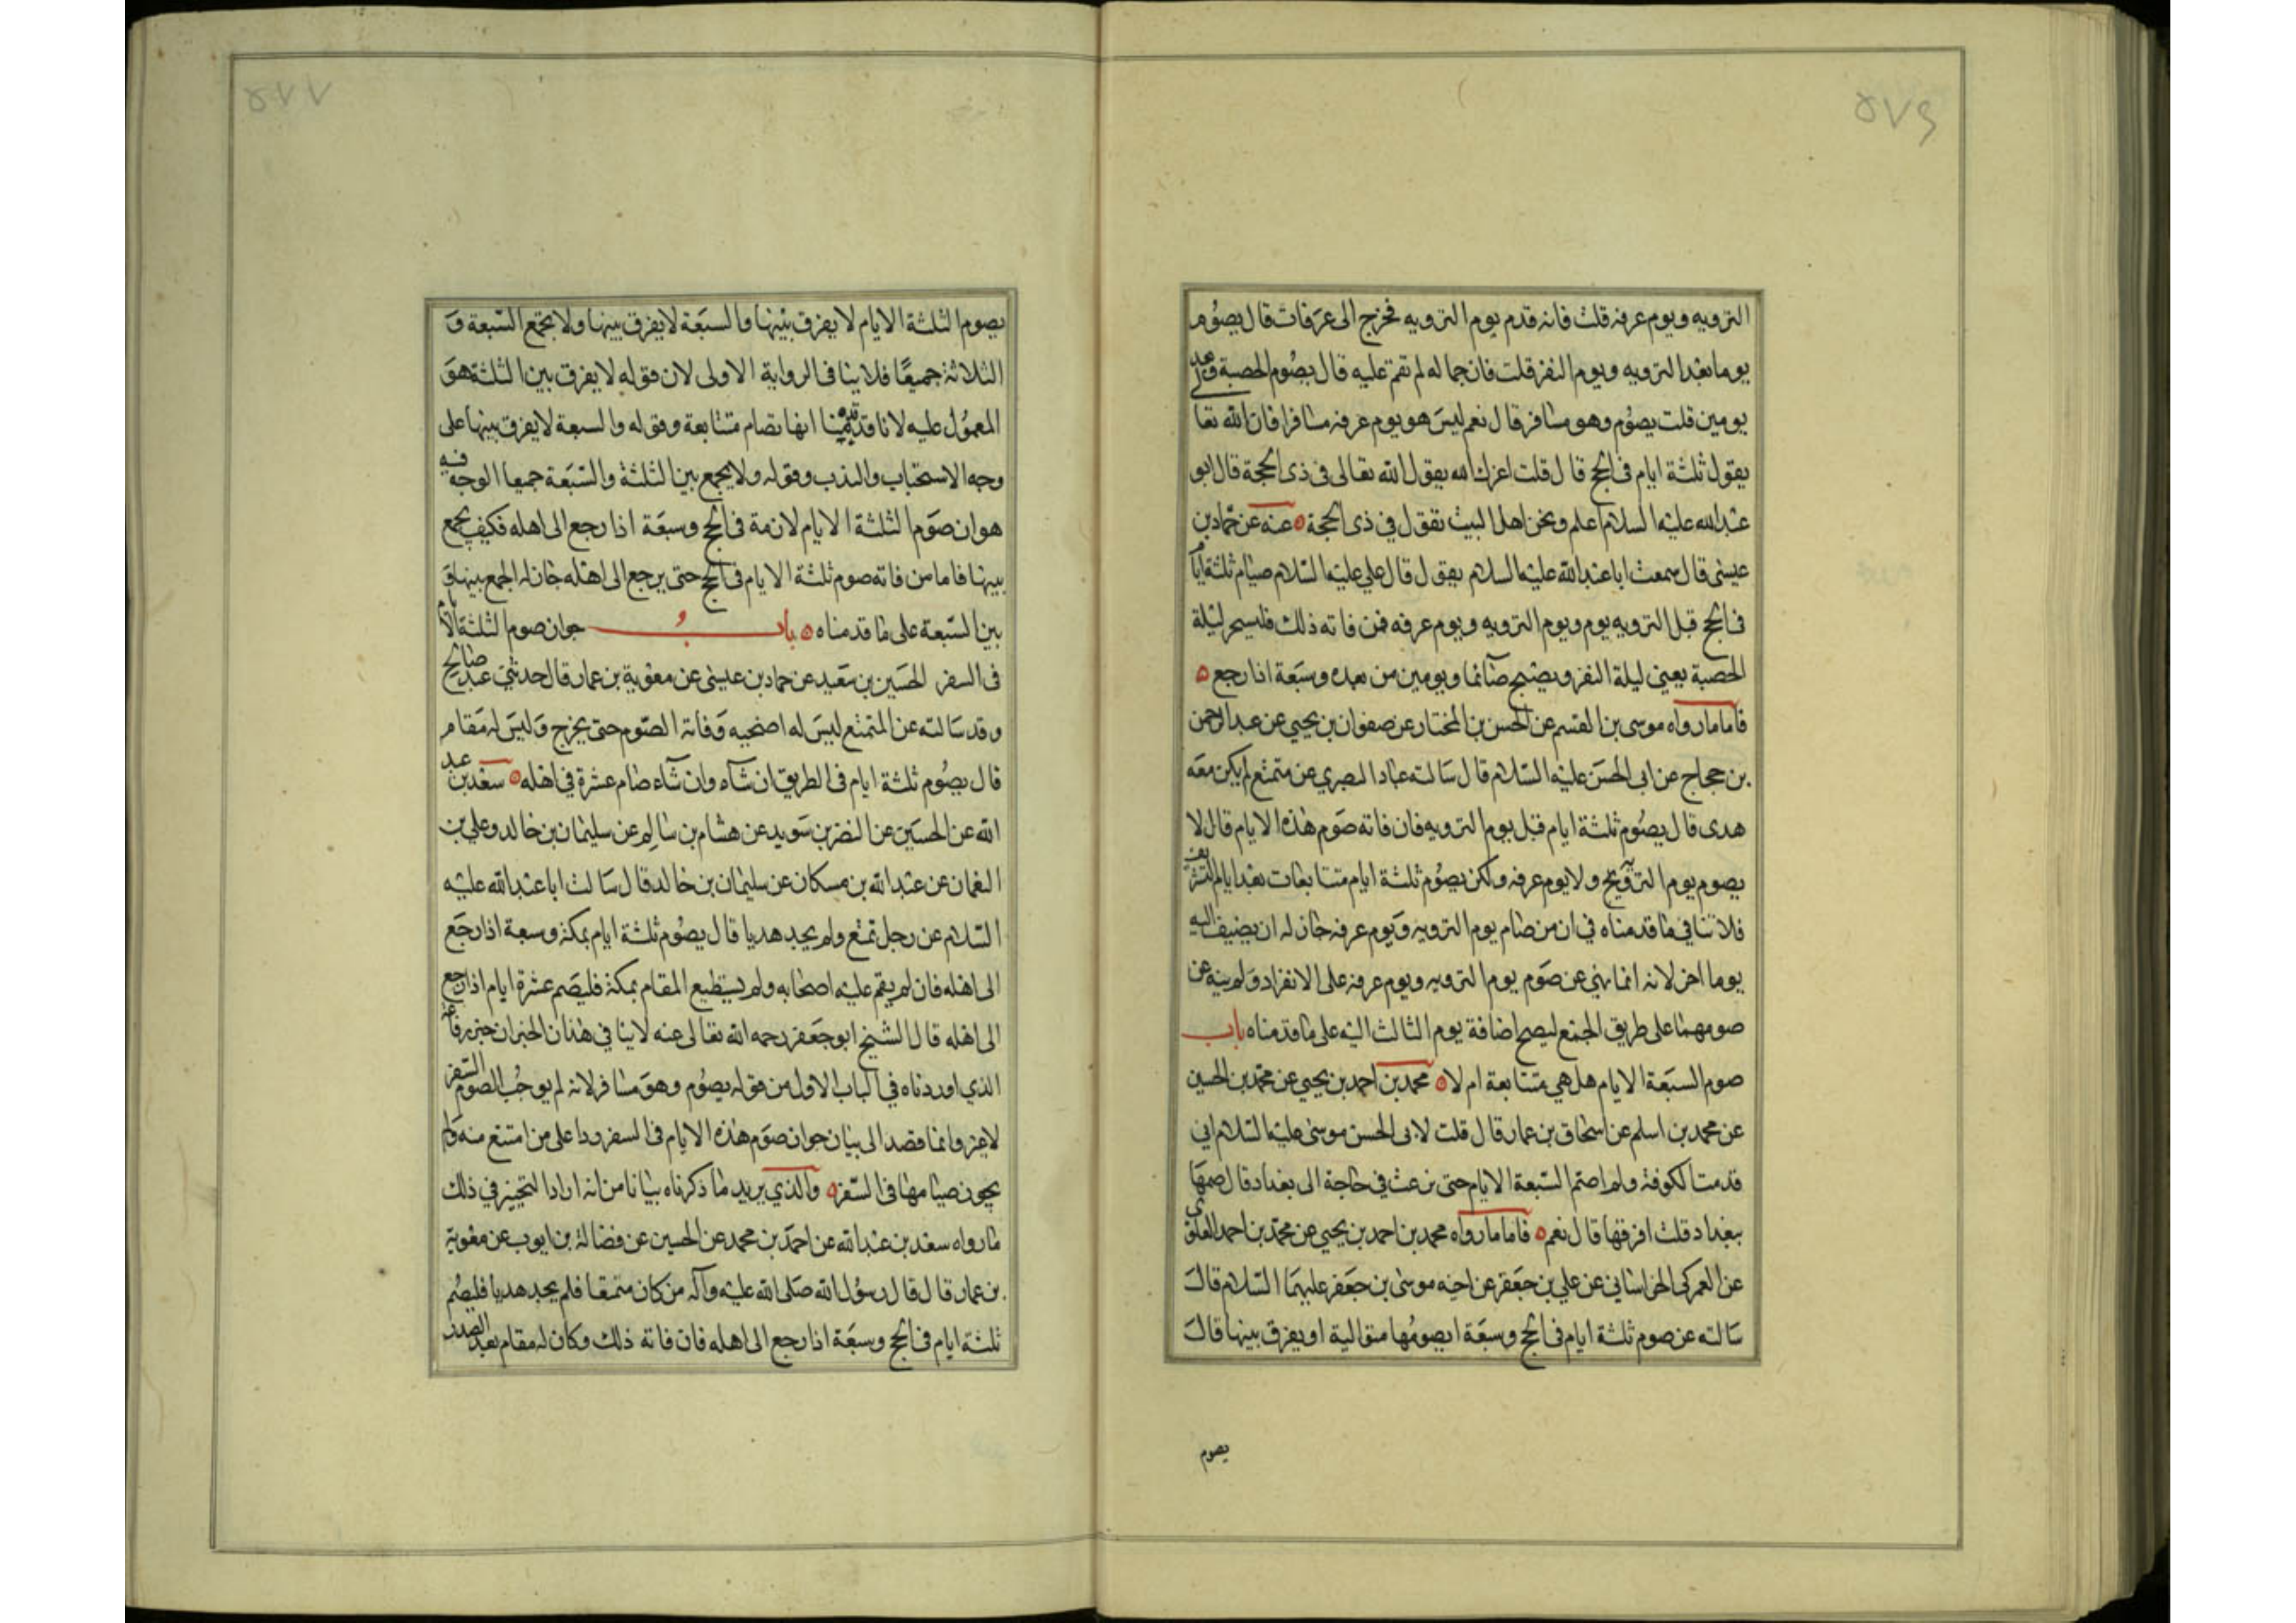 ٥٧٦
الترويه ويوم عرفه قلت فانه قدم يوم الترويه فخرج الى عرفات قال يصوم
يوما بعد الترويه ويوم النفر قلت فان جماله لم تقم عليه قال يصوم الحصبة وبعده
يومين قلت يصوم وهو مسافر قال نعم ليس هو يوم عرفه مسافرا فان الله تعا
يقول ثلثة ايام في الحج قال قلت اعزك الله يقول الله تعالى في ذى الحجة قال ابو
عبد الله عليه السلام اعلم ونحن اهل البيت نقول في ذى الحجة عنه عن حماد بن
عيسى قال سمعت ابا عبد الله عليه السلام يقول قال علي عليه السلام صيام ثلثة ايام
في الحج قبل الترويه يوم ويوم الترويه ويوم عرفه فمن فاته ذلك فليسحر ليلة
الحصبة يعني ليلة النفر ويصبح صائما ويومين من بعده وسبعة اذا رجع
فاما ما رواه موسى بن القسم عن الحسن بن المختار عن صفوان بن يحيى عن عبد الرحمن
بن حجاج عن ابى الحسن عليه السلام قال سالته عباد البصري عن متمتع لم يكن معه
هدى قال يصوم ثلثة ايام قبل يوم الترويه فان فاته صوم هذه الايام قال لا
يصوم يوم الترويح ولا يوم عرفه ولكن يصوم ثلثة ايام متتابعات بعد ايام التشريق
فلا تنافي ما قدمناه في ان من صام يوم الترويه ويوم عرفه جاز له ان يضيف اليه
يوما اخر لانه انما نهي عن صوم يوم الترويه ويوم عرفه على الانفراد ولم ينه عن
صومهما على طريق الجمع ليصح اضافة يوم الثالث اليه على ما قدمناه باب
صوم السبعة الايام هل هي متتابعة ام لا محمد بن احمد بن يحيى عن محمد بن الحسين
عن محمد بن اسلم عن اسحاق بن عمار قال قلت لابى الحسن موسى عليه السلام اني
قدمت الكوفة ولم اصم السبعة الايام حتى نزعت في حاجة الى بغداد قال صمها
ببغداد قلت افرقها قال نعم فاما ما رواه محمد بن احمد بن يحيى عن محمد بن احمد العلوى
عن العمركى الخراساني عن علي بن جعفر عن اخيه موسى بن جعفر عليهما السلام قال
سالته عن صوم ثلثة ايام في الحج وسبعة ايصومها متوالية او يفرق بينها قال
يصوم
٥٧٧
يصوم الثلثة الايام لا يفرق بينها والسبعة لا يفرق بينها ولا يجمع السبعة و
الثلاثة جميعا فلا ينافى الرواية الاولى لان قوله لا يفرق بين الثلثة هو
المعمول عليه لانا قد بينا انها تصام متتابعة وقوله والسبعة لا يفرق بينها على
وجه الاستحباب والندب وقوله ولا يجمع بين الثلثة والسبعة جميعا الوجه فيه
هو ان صوم الثلثة الايام لازمة في الحج وسبعة اذا رجع الى اهله فكيف يجمع
بينها فاما من فاته صوم ثلثة الايام في الحج حتى يرجع الى اهله جاز له الجمع بينها و
بين السبعة على ما قدمناه باب جواز صوم الثلثة الايام
فى السفر الحسين بن سعيد عن حماد بن عيسى عن معوية بن عمار قال حدثني عبد صالح
وقد سالته عن المتمتع ليس له اضحيه وفاته الصوم حتى يخرج وليس له مقام
قال يصوم ثلثة ايام فى الطريق ان شاء وان شاء صام عشرة في اهله سعد بن عبد
الله عن الحسين عن النضر بن سويد عن هشام بن سالم عن سليمان بن خالد وعلي بن
النعمان عن عبد الله بن مسكان عن سليمان بن خالد قال سالت ابا عبد الله عليه
السلام عن رجل تمتع ولم يجد هديا قال يصوم ثلثة ايام بمكة وسبعة اذا رجع
الى اهله فان لم يقم عليه اصحابه ولم يستطيع المقام بمكة فليصم عشرة ايام اذا رجع
الى اهله قال الشيخ ابو جعفر رحمه الله تعالى عنه لا ينافي هذان الخبران خبر رفاعة
الذي اوردناه في الباب الاول من قوله يصوم وهو مسافر لانه لم يوجب الصوم السفر
لا غير وانما قصد الى بيان جواز صوم هذه الايام فى السفر ردا على من امتنع منه ولم
يجوز صيامها فى السفر والذي يريد ما ذكرناه بيانا من انه اراد التخيير في ذلك
ما رواه سعد بن عبد الله عن احمد بن محمد عن الحسين عن فضالة بن ايوب عن معوية
بن عمار قال قال رسول الله صلى الله عليه وآله من كان متمتعا فلم يجد هديا فليصم
ثلثة ايام في الحج وسبعة اذا رجع الى اهله فان فاته ذلك وكان له مقام بعد الصدر